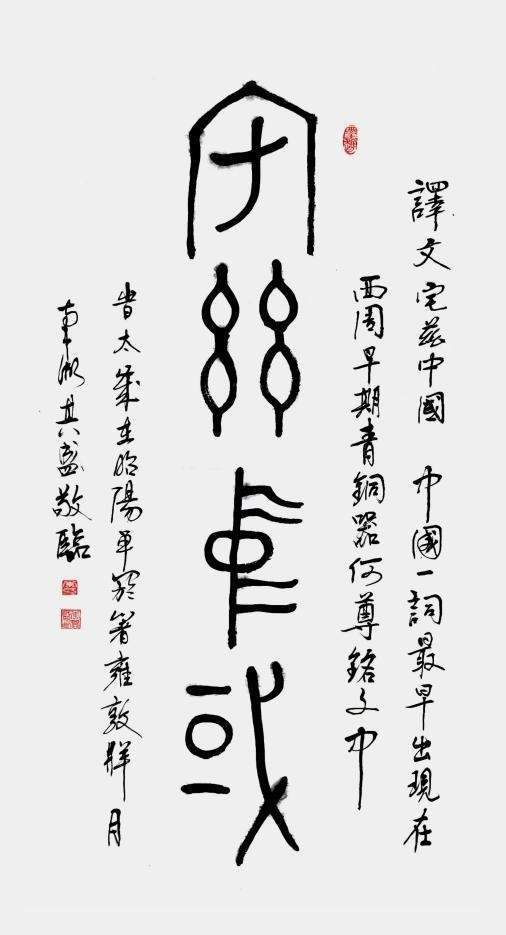 宅茲中或
譯文宅茲中國 中國一詞最早出現在
西周早期青銅器何尊銘文中
旹太歲在昭陽單閼箸雍敦牂月
東湖其盛敬臨